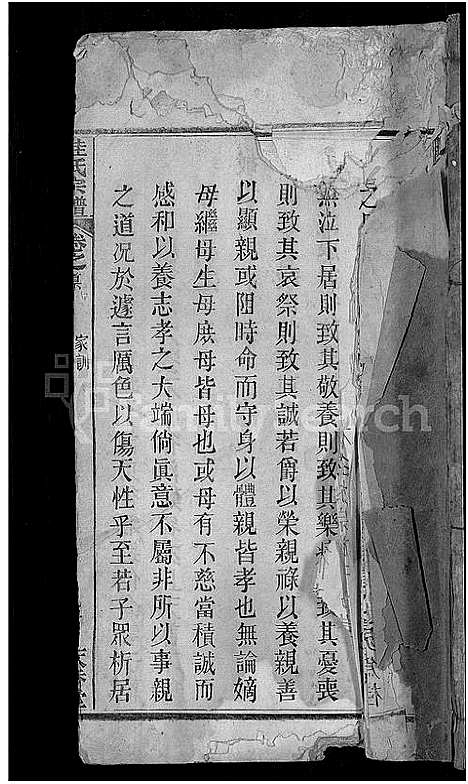 無泣下居則致其敬養則致其樂 致其憂喪
則致其哀祭則致其誠若爵以榮親祿以養親善
以顯親或阻時命而守身以體親皆孝也無論嫡
母繼母生母庶母皆母也或母有不慈當積誠而
感和以養志孝之大端倘眞意不屬非所以事親
之道况於遽言厲色以傷天性乎至若子眾析居
桂氏宗譜 卷之 家訓
FamilySearch